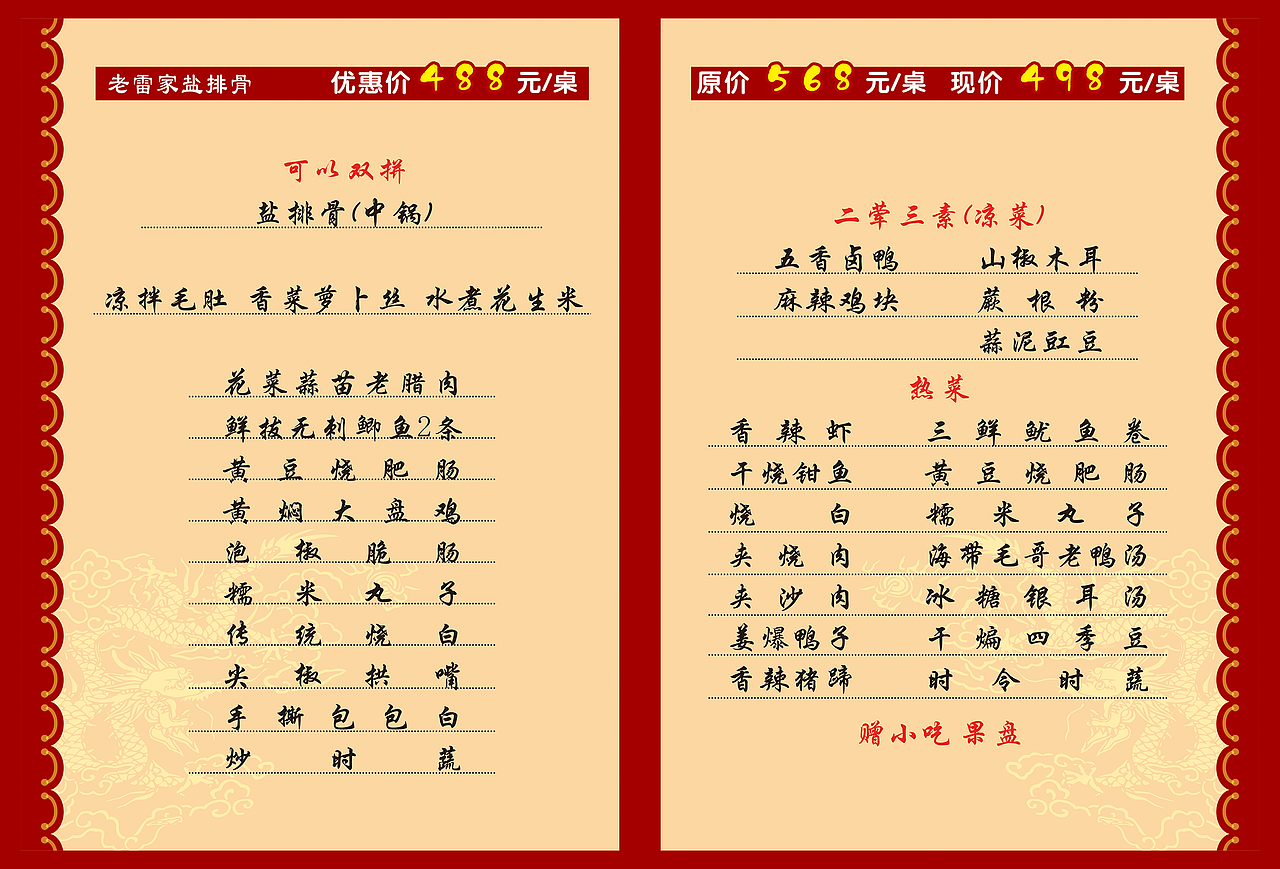 老雷家盐排骨 优惠价 488 元/桌
可以双拼
盐排骨(中锅)
凉拌毛肚 香菜萝卜丝 水煮花生米
花菜蒜苗老腊肉
鲜拔无刺鲫鱼2条
黄豆烧肥肠
黄焖大盘鸡
泡椒脆肠
糯米丸子
传统烧白
尖椒拱嘴
手撕包包白
炒时蔬
原价 568 元/桌 现价 498 元/桌
二荤三素(凉菜)
五香卤鸭 山椒木耳
麻辣鸡块 蕨根粉
蒜泥豇豆
热菜
香辣虾 三鲜鱿鱼卷
干烧钳鱼 黄豆烧肥肠
烧白 糯米丸子
夹烧肉 海带毛哥老鸭汤
夹沙肉 冰糖银耳汤
姜爆鸭子 干煸四季豆
香辣猪蹄 时令时蔬
赠小吃 果盘